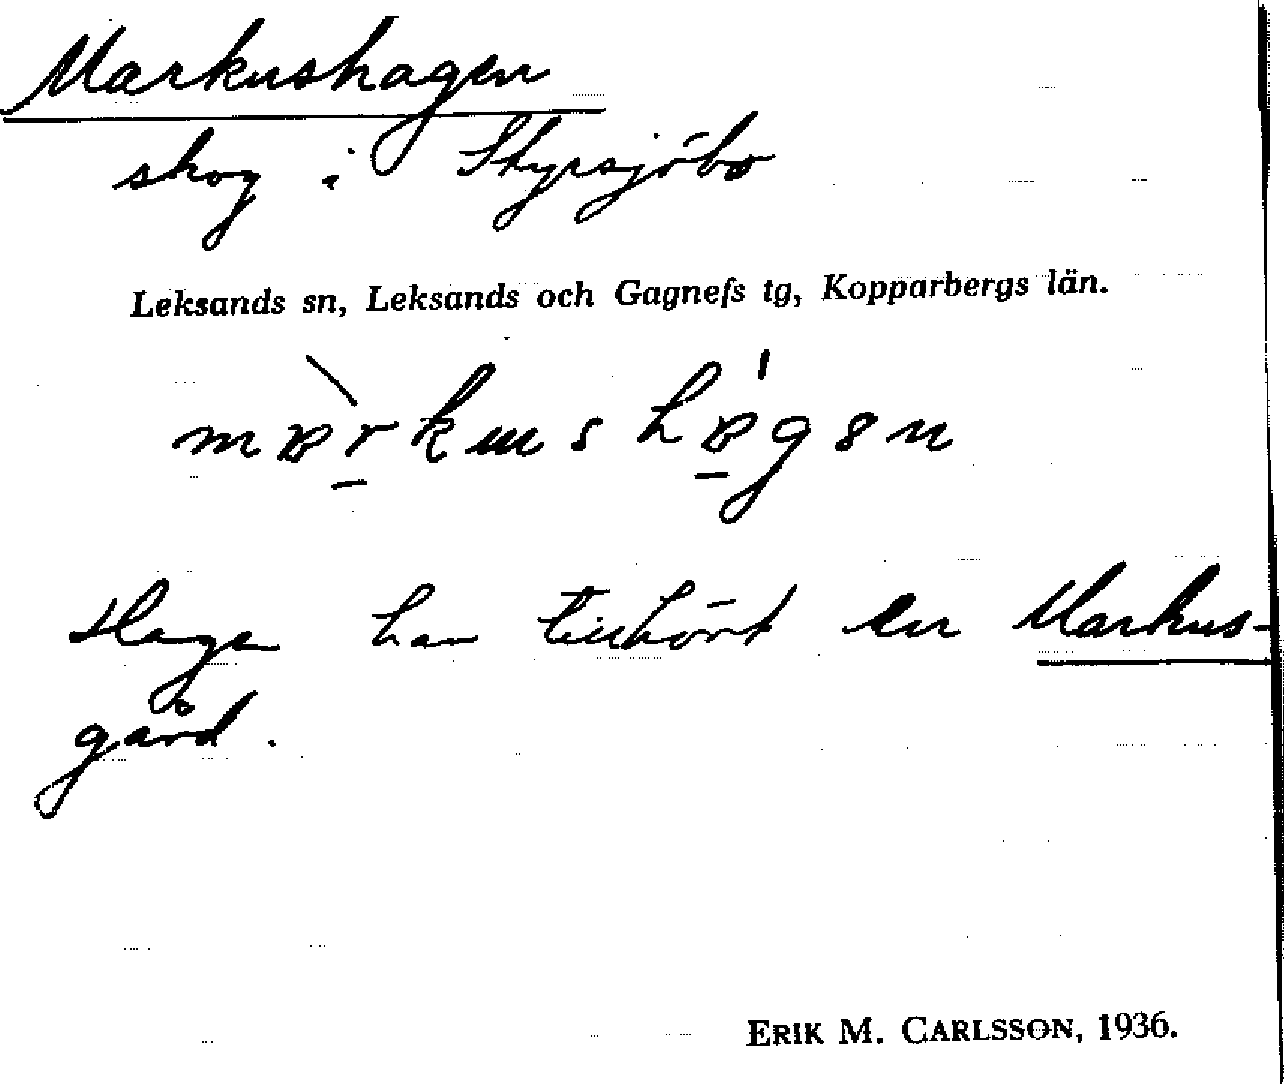 Markushagen
skog i Styrsjöbo
Leksands sn, Leksands och Gagnefs tg, Kopparbergs län.
Hagen har tillhört en Markus-
gård.
ERIK M. CARLSSON, 1936.